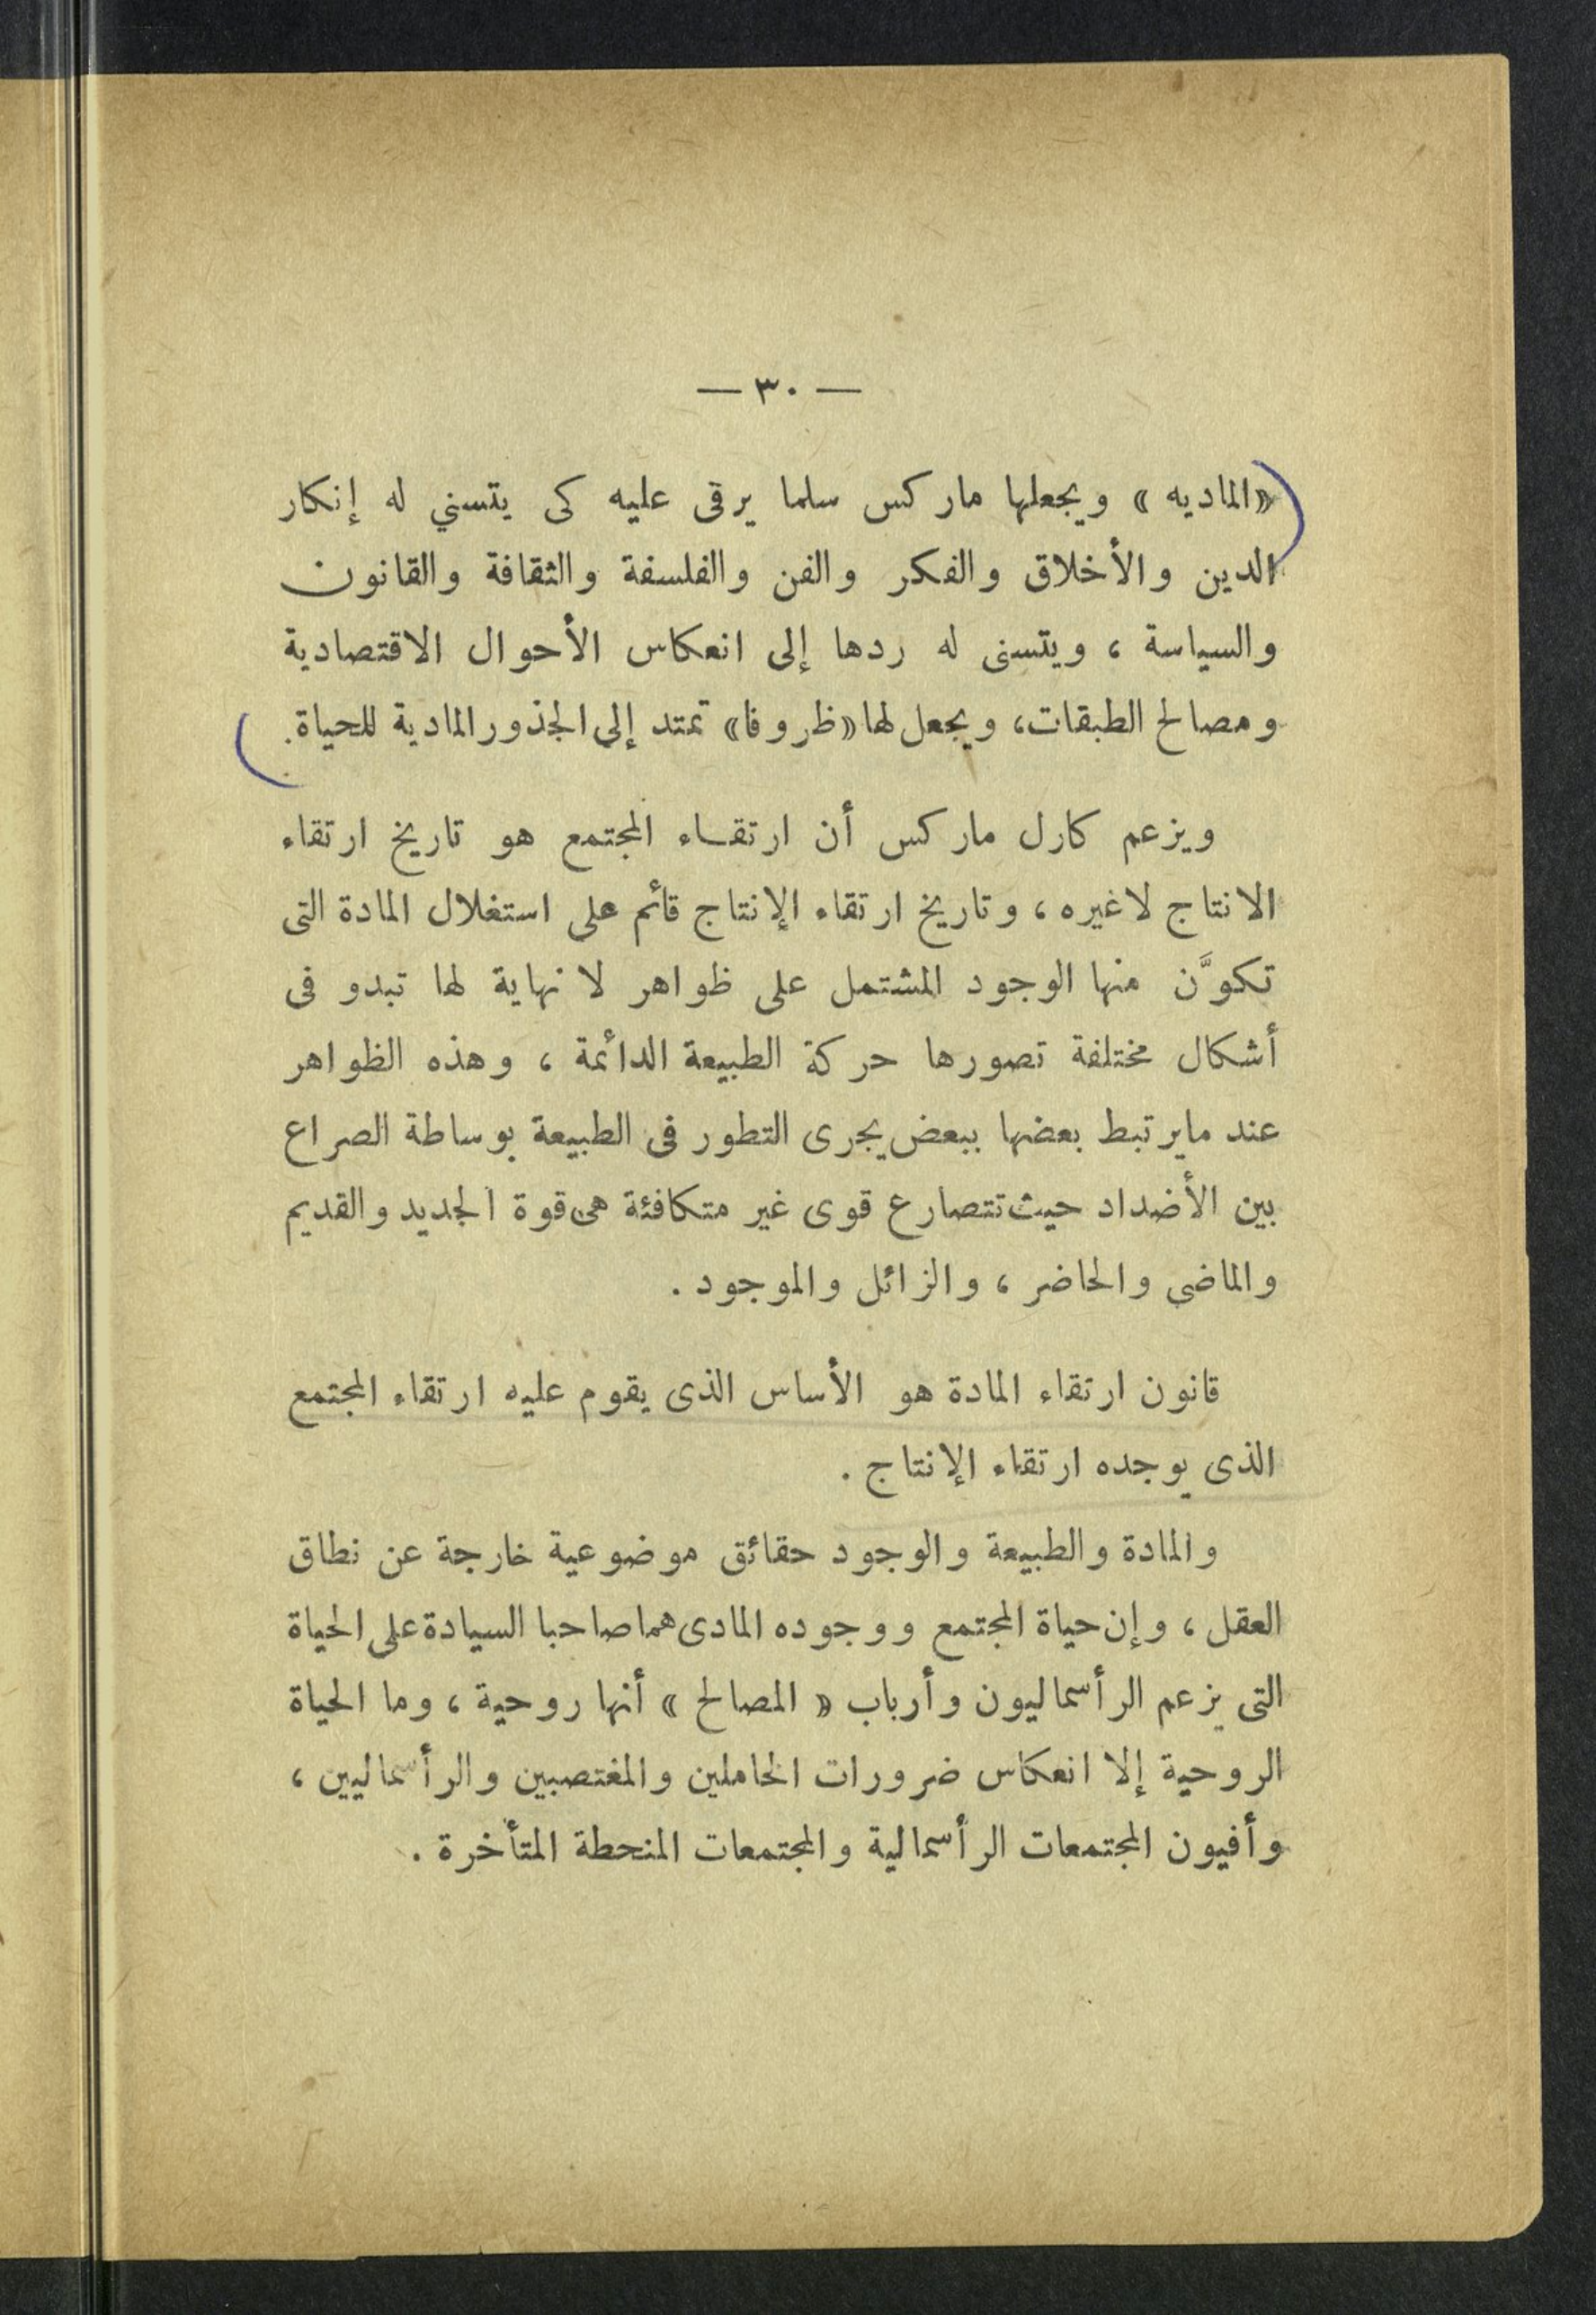 — ٣٠ —
«الماديه» ويجعلها ماركس سلما يرقى عليه كى يتسني له إنكار
الدين والأخلاق والفكر والفن والفلسفة والثقافة والقانون
والسياسة ، ويتسنى له ردها إلى انعكاس الأحوال الاقتصادية
ومصالح الطبقات، ويجعل لها «ظروفا» تمتد إلى الجذور المادية للحياة.
ويزعم كارل ماركس أن ارتقاء المجتمع هو تاريخ ارتقاء
الانتاج لاغيره ، وتاريخ ارتقاء الإنتاج قائم على استغلال المادة التى
تكوَّن منها الوجود المشتمل على ظواهر لا نهاية لها تبدو فى
أشكال مختلفة تصورها حركة الطبيعة الدائمة ، وهذه الظواهر
عند مايرتبط بعضها ببعض يجرى التطور فى الطبيعة بوساطة الصراع
بين الأضداد حيث تتصارع قوى غير متكافئة هى قوة الجديد والقديم
والماضى والحاضر ، والزائل والموجود .
قانون ارتقاء المادة هو الأساس الذى يقوم عليه ارتقاء المجتمع
الذى يوجده ارتقاء الإنتاج .
والمادة والطبيعة والوجود حقائق موضوعية خارجة عن نطاق
العقل ، وإن حياة المجتمع ووجوده المادى هما صاحبا السيادة على الحياة
التى يزعم الرأسماليون وأرباب « المصالح » أنها روحية ، وما الحياة
الروحية إلا انعكاس ضرورات الخاملين والمغتصبين والرأسماليين ،
وأفيون المجتمعات الرأسمالية والمجتمعات المنحطة المتأخرة .